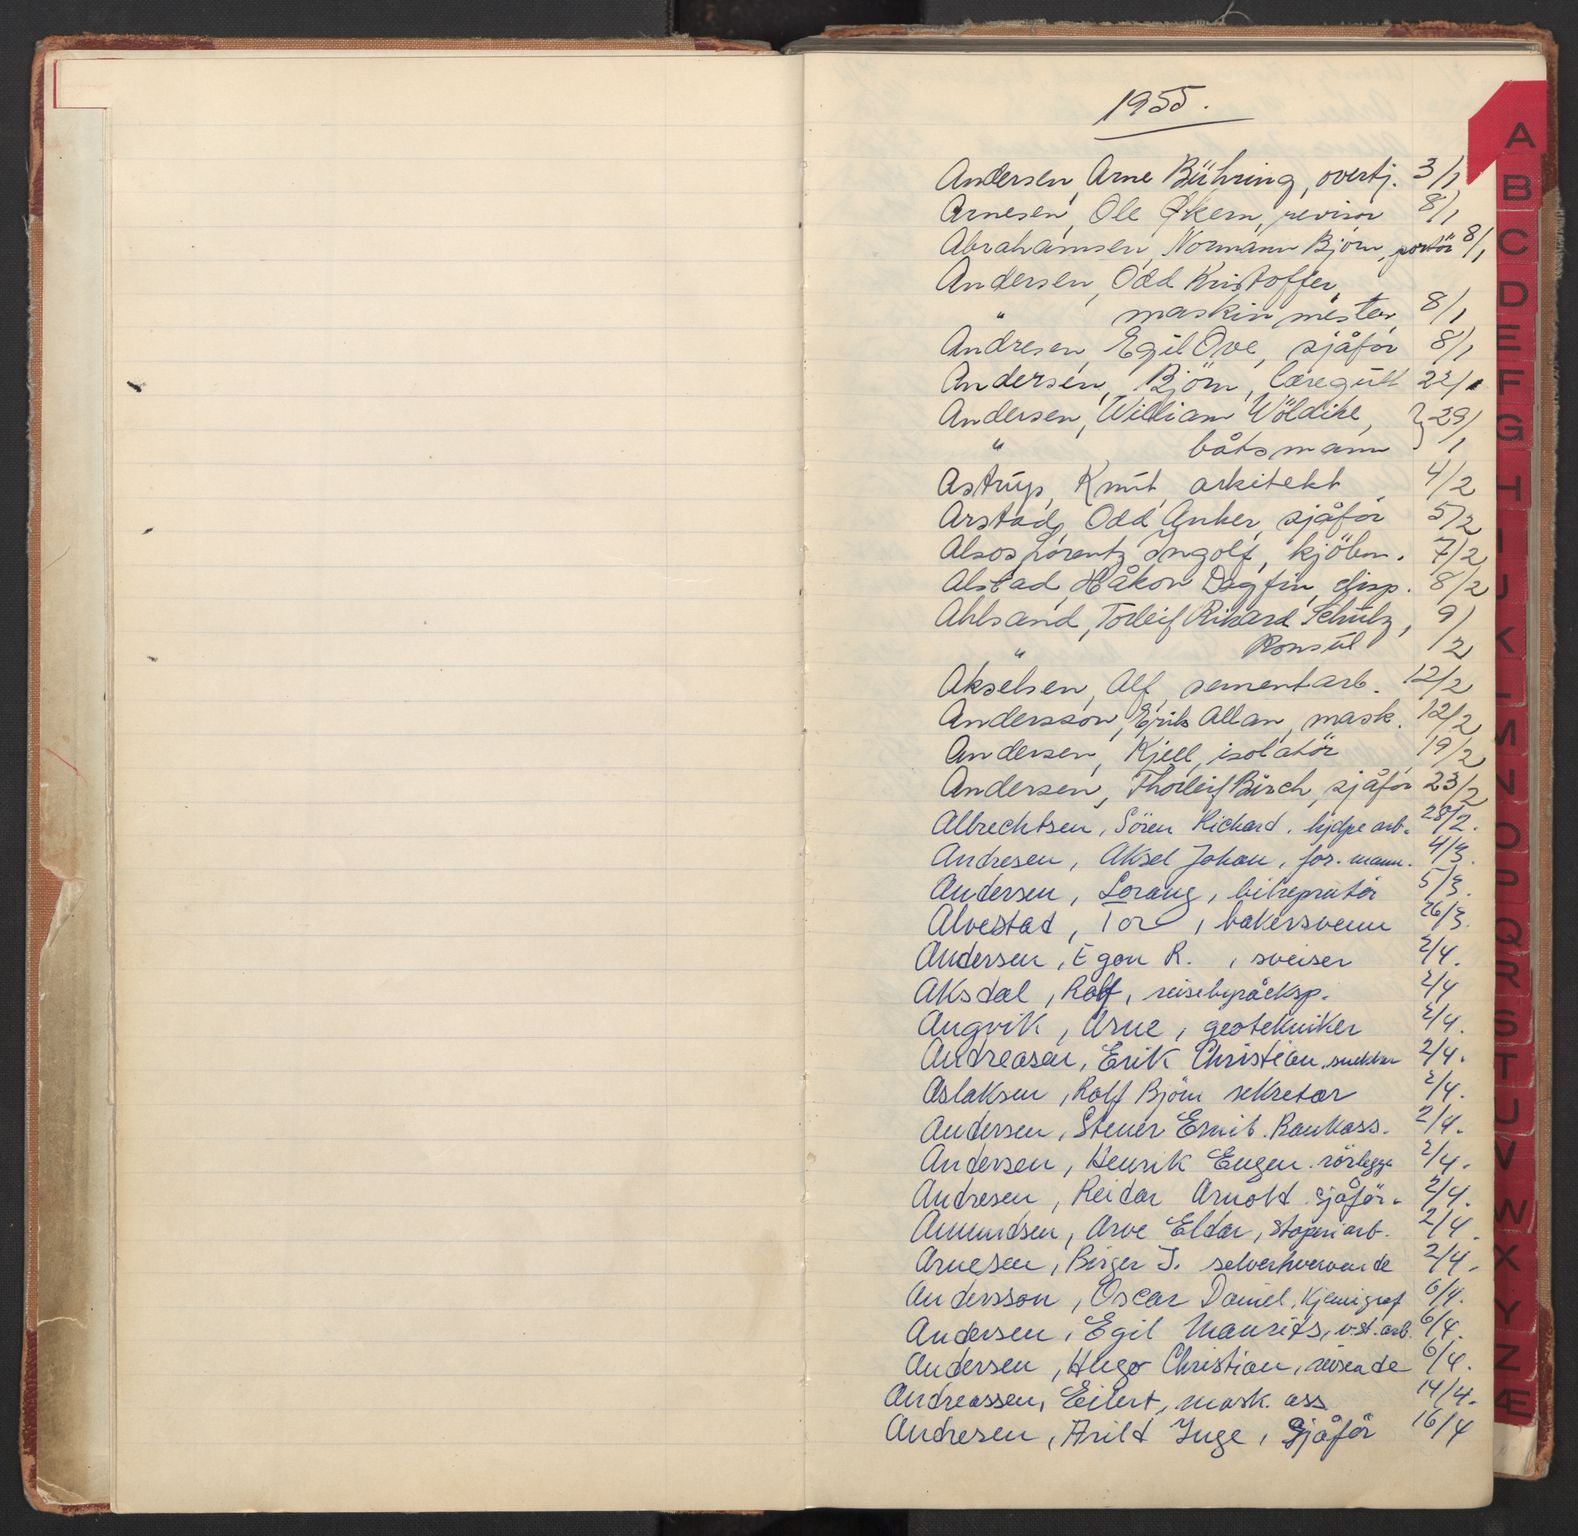 1955.
Andersen, Arne Bühring, overtj. 3/1
Arnesen, Ole Økern, revisor 8/1
Abrahamsen, Normann Bjørn, portør 8/1
Andersen, Odd Kristoffer,
" maskinmester 8/1
Andresen, Egil Ove, sjåför 8/1
Andersen, Björn, læregutt 22/1
Andersen, William Wöldike, } 29/1
" båtsmann
Astrup, Knut, arkitekt 4/2
Arstad, Odd Anker, sjåför 5/2
Alsos, Lorentz Ingolf, kjöbm. 7/2
Alstad, Håkon Dagfin, disp. 8/2
Ahlsand, Torleif Rikard Schulz, 9/2
" Konsul
Akselsen, Alf, sementarb. 12/2
Andersson, Erik Allan, mask. 12/2
Andersen, Kjell, isolatör 19/2
Andersen, Thorleif Birch, sjåför 23/2
Albrechtsen, Sören Richard. hjelpearb. 28/2.
Andresen, Aksel Johan, for.mann. 4/3.
Andersen, Lorang, bilreparatör 5/3.
Alvestad, Tor, bakersvenn 26/3.
Andersen, Egon R., sveiser 2/4.
Aksdal, Rolf, reisebyråeksp. 2/4
Angvik, Arne, geotekniker 2/4.
Andreasen, Erik Christian, snekker 2/4.
Aslaksen, Rolf Björn sekretær 2/4.
Andersen, Stener Emil. Bankass. 2/4.
Andersen, Henrik Eugen. rörlegger 2/4.
Andresen, Reidar Arnold. sjåför. 2/4.
Amundsen, Arve Eldar, støperiarb. 2/4.
Arnesen, Birger J. selverhvervende 2/4.
Andersson, Oscar Daniel, Kjemigraf 6/4.
Andersen, Egil Maurits, v.st.arb. 6/4.
Andersen, Hugo Christian, reisende 6/4.
Andreassen, Eilert, mask. ass 14/4.
Andresen, Arild Inge, Sjåför 16/4
A
B
C
D
E
F
G
H
I
J
K
L
M
N
O
P
Q
R
S
T
U
V
W
X
Y
Z
Æ